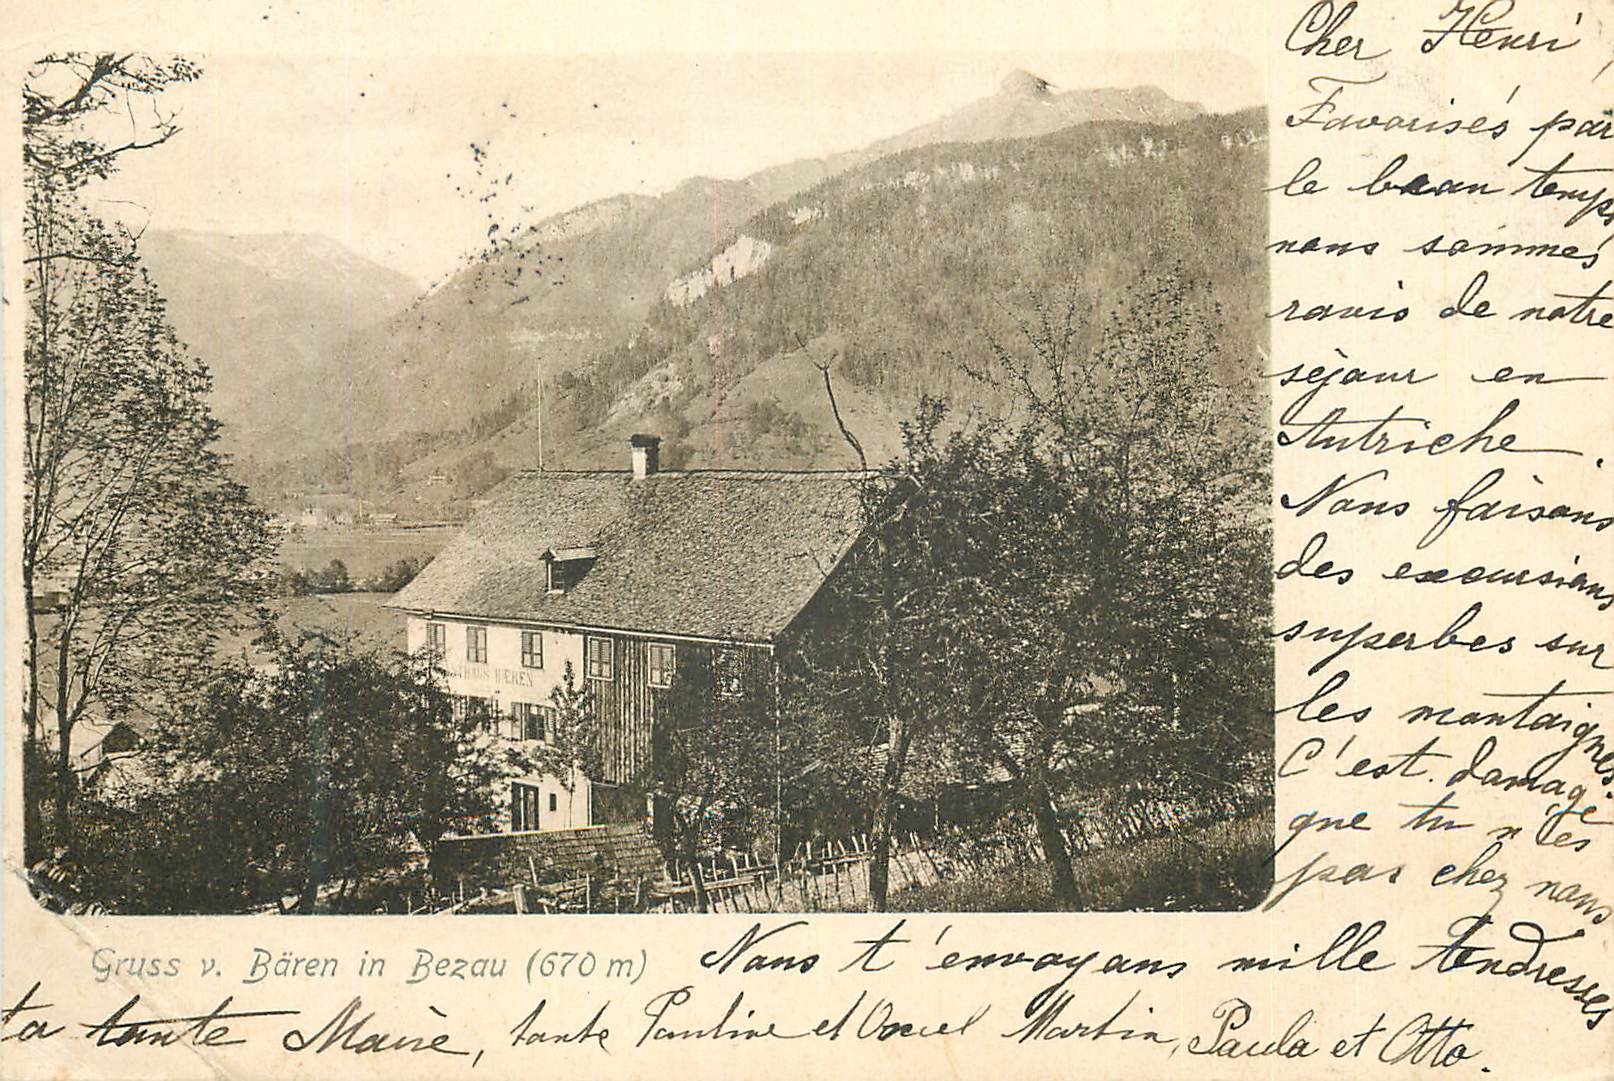 Cher Henri,
Favorisés par
le beau temps
nous sommes
ravis de notre
séjour en
Autriche.
Nous faisons
des excursions
superbes sur
les montaignes.
C'est damage
que tu n'es
pas chez nous
Nous t'envoyons mille tendresses
ta tante Marie, tante Pauline et Oncel Martin, Paula et Otto.
Gruss v. Bären in Bezau (670 m)
THAUS BÆREN